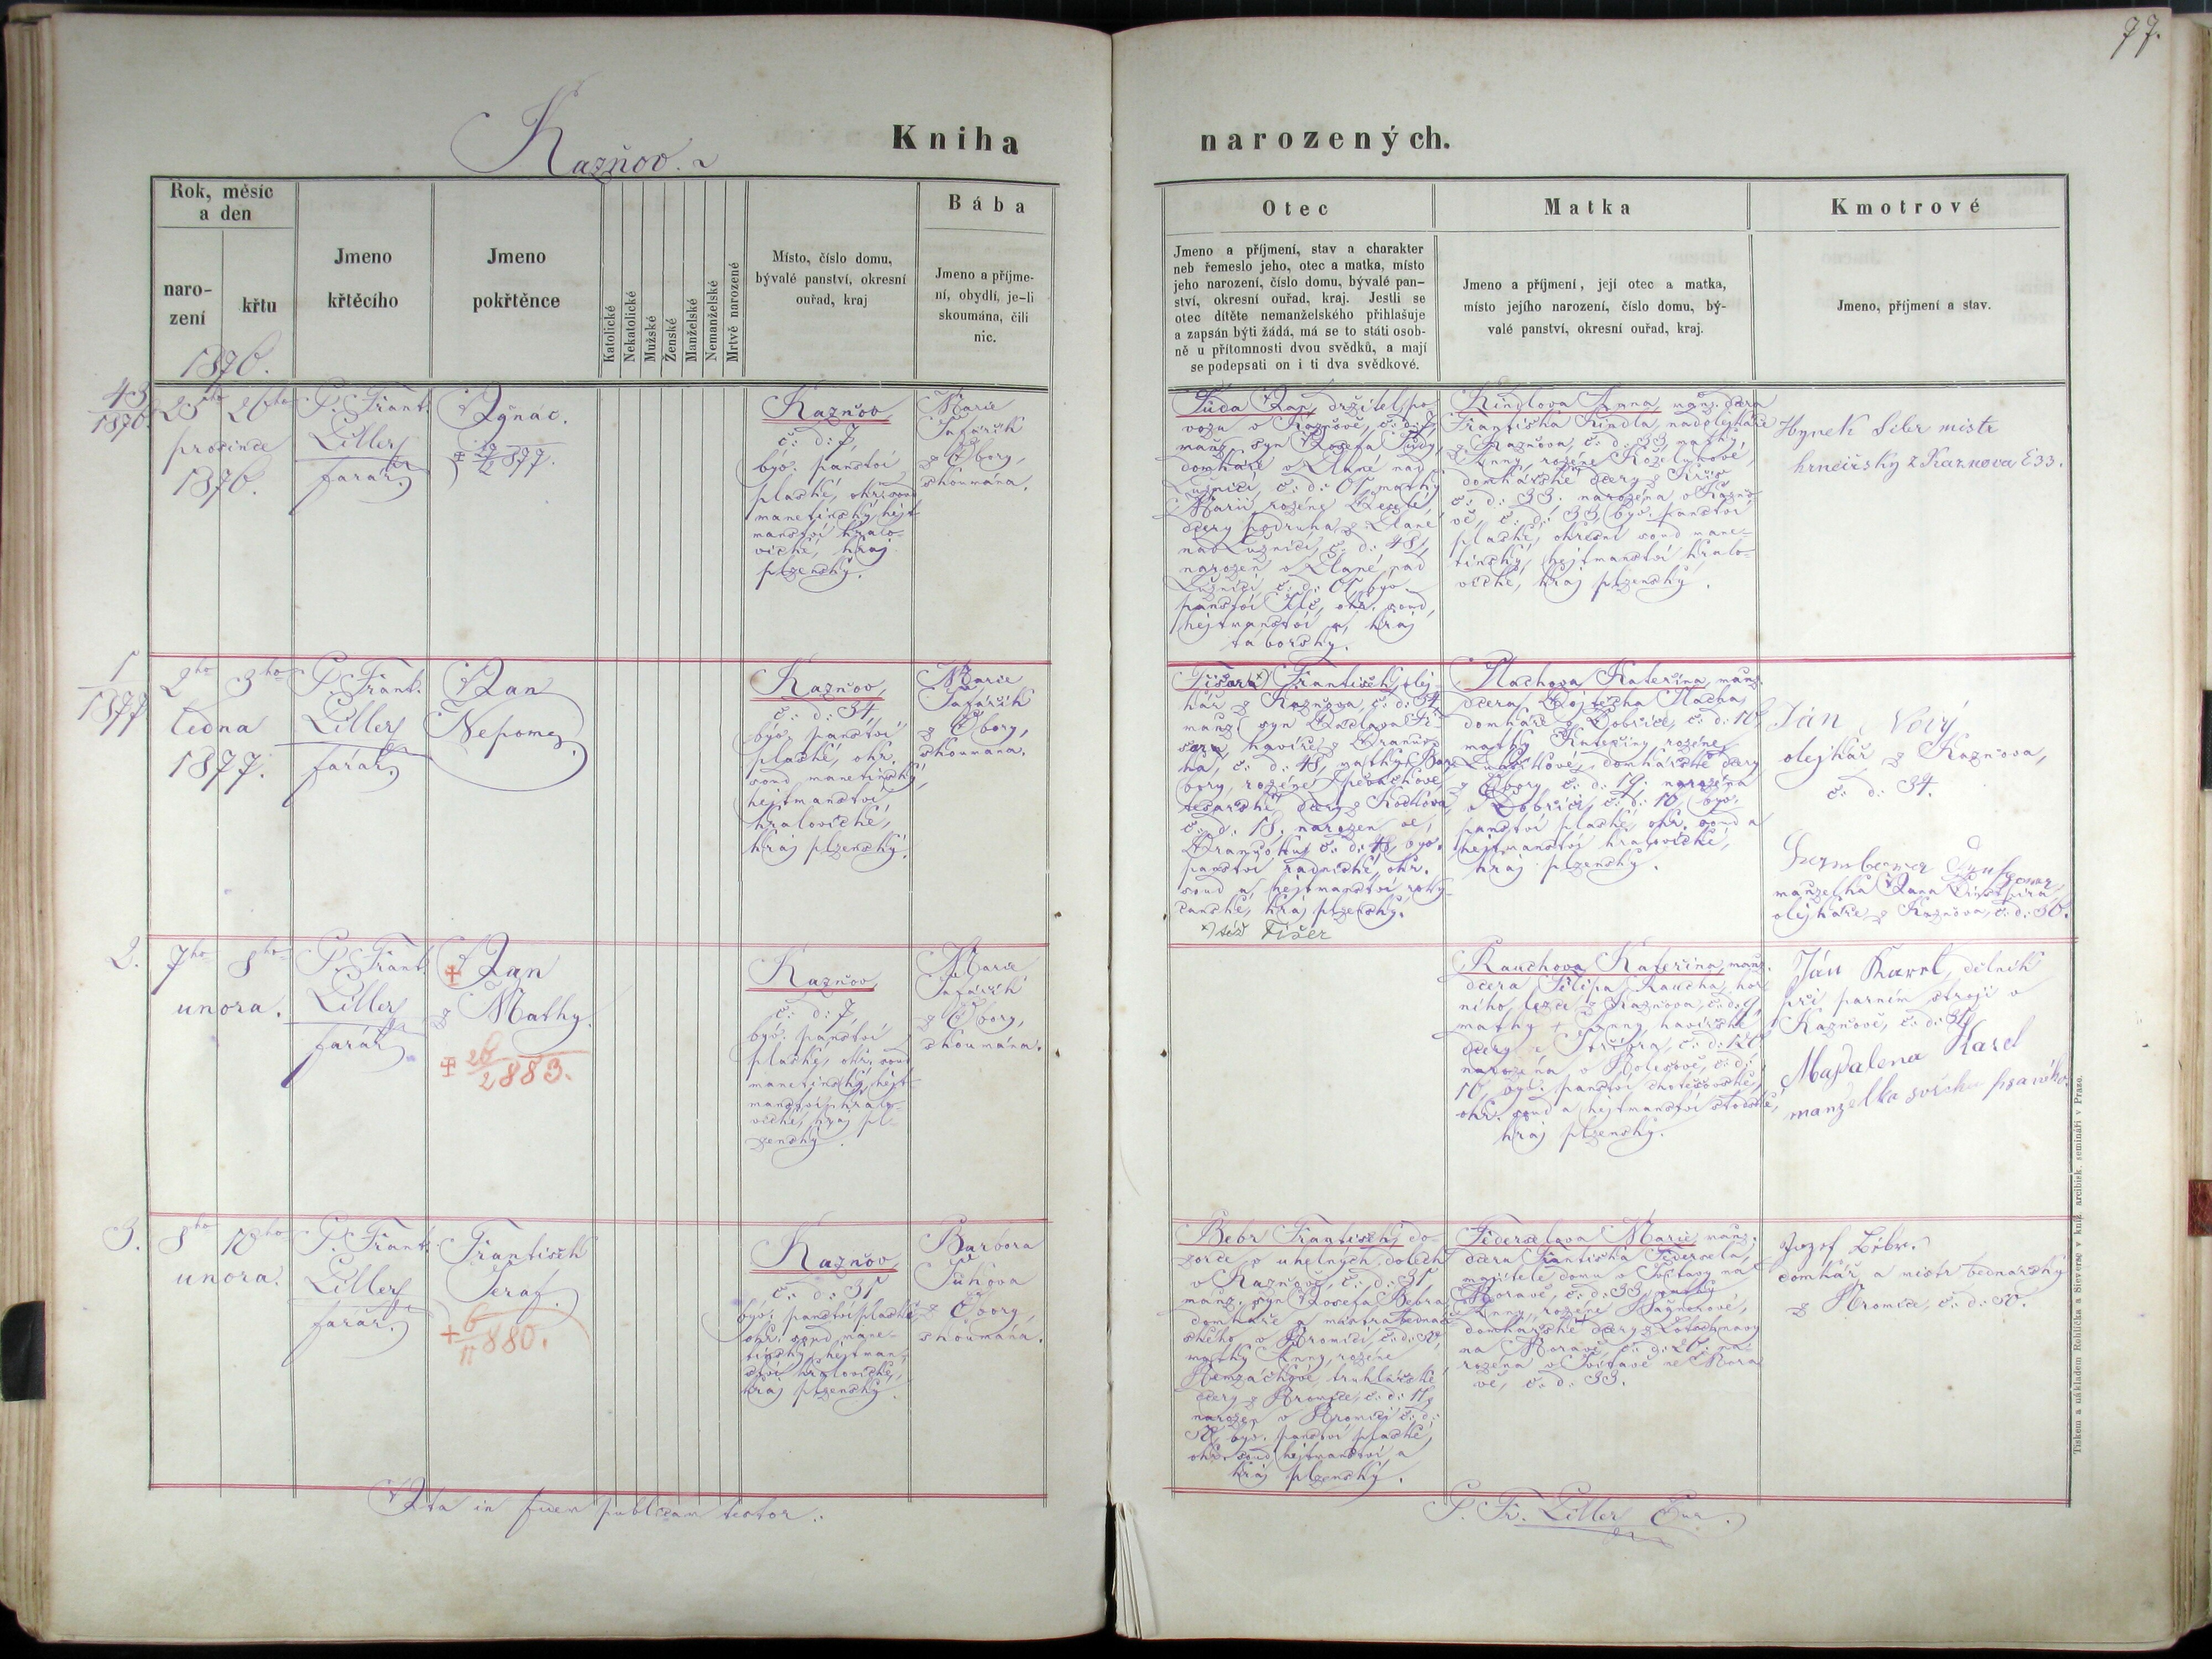 77.
Kazňov.
Kniha
narozených.
Rok, měsíc
a den
naro-
zení
křtu
Jmeno
křtěcího
Jmeno
pokřtěnce
Katolické
Nekatolické
Mužské
Ženské
Manželské
Nemanželské
Mrtvě narozené
Místo, číslo domu,
bývalé panství, okresní
ouřad, kraj
Bába
Jmeno a příjme-
ní, obydlí, je-li
skoumána, čili
nic.
Otec
Jmeno a příjmení, stav a charakter
neb řemeslo jeho, otec a matka, místo
jeho narození, číslo domu, bývalé pan-
ství, okresní ouřad, kraj. Jestli se
otec dítěte nemanželského přihlašuje
a zapsán býti žádá, má se to státi osob-
ně u přítomnosti dvou svědků, a mají
se podepsati on i ti dva svědkové.
Matka
Jmeno a příjmení, její otec a matka,
místo jejího narození, číslo domu, bý-
valé panství, okresní ouřad, kraj.
Kmotrové
Jmeno, příjmení a stav.
1876.
43
1876
25ho 26ho
prosince
1876.
P. Frant.
Liller
farář.
Ignác.
877.
Kazňov
č. d. 7,
býv. panství
plaské, okr. soud
manetinský, hejt-
manství kralo-
vické, kraj
plzenský.
Marie
Šafařík
z Obory,
skoumána.
Fůda Jan, držitel po-
vozu v Kazňově, č. d. 7,
manž. syn Josefa Fůdy,
domkáře v Plané nad
Lužnicí, č. d. matky
Marii, rozené Veselé,
dcery podruha z Plané
nad Lužnicí, č. d. 48,
narozen v Plané nad
Lužnicí, č. d. býv.
panství okr. soud,
hejtmanství a kraj
táborský.
Kindlova Anna, manž. dcera
Františka Kindla, nadolejkáře
z Kazňova, č. d. 33, matky
Anny, rozéné Koželuhové,
domkářské dcery z
č. d. 33. narozena v Kazňo-
vě, č. d. 33, býv. panství
plaské, okresní soud mane-
tinský, hejtmanství kralo-
vické, kraj plzenský.
Hynek Siler mistr
hrnčířský z Kaznova č 33.
1
1877
2ho 3ho
ledna
1877.
P. Frant.
Liller
farář.
Jan
Nepomuz.
Kazňov,
č. d. 34,
býv. panství
plaské, okr.
soud manetinský,
hejtmanství
kralovické,
kraj plzenský.
Marie
Šafařík
z Obory,
skoumána.
Fišara x) František, olej-
kář z Kazňova, č. d. 34,
manž. syn Václava Fi-
šara, havíře z Vranov-
ka, č. d. 48, matky Bar-
bory, rozéné
tesařské dcery z
č. d. 18. narozen ve
Vranovku, č. d. 48, býv.
panství radnické, okr.
soud a hejtmanství roky-
canské, kraj plzenský.
x) též Fišer
Plachova Kateřina, manž.
dcera Vojtěcha Placha,
domkáře z Dobříče, č. d. 10,
matky Kateřiny, rozéné
domkářské dcery
z Obory č. d. 19. narozéna
v Dobříči, č. d. 10, býv.
panství plaské, okr. soud a
hejtmanství kralovické,
kraj plzenský.
Ján Nový
olejkář z Kazňova,
č. d. 34.
manželka Jana
olejkáře z Kazňova, č. d. 36.
2.
7ho 8ho
unora.
P. Frant.
Liller
farář
+ Jan
z Mathy.
26
2 883.
Kazňov
č. d. 7,
býv. panství
plaské, okr. soud
manetinský, hejt-
manství kralo-
vické, kraj pl-
zenský.
Marie
Šafařík
z Obory,
skoumána.
Rauchova Kateřina, manž.
dcera Filipa Raucha, hor-
ního lezce z Kazňova, č. d. 9,
matky + Anny, havířské
dcery z Stříbra, č. d. 120,
narozéna v Holešově, č. d.
10, býv. panství chotěšovské,
okr. soud a hejtmanství stodské,
kraj plzenský.
Ján Karel, dělník
při parním stroji v
Kazňově, č. d. 31.
Majdalena Karel
manzelka svrchu psaniho.
3.
8ho 10ho
unora.
P. Frant.
Liller
farář.
František
Seraf.
+ 6
11 880.
Kazňov,
č. d. 31
býv. panství plaské,
okr. soud mane-
tinský, hejtman-
ství kralovické,
kraj plzenský.
Barbora
z Obory,
skoumána.
Bebr František, do-
zorce v uhelných dolech
v Kazňově, č. d. 31,
manž. syn Josefa Bebra,
domkáře a mistra bednář-
ského v Hromici, č. d. 50,
matky Anny, rozéné
truhlářské
dcery z Hromice, č. d. 11,
narozen v Hromici, č. d.
50, býv. panství plaské,
okr. soud, hejtmanství a
kraj plzenský.
Federselova Marie, manž.
dcera Františka Federsela,
majitele domu v Svitavy na
Moravě, č. d. 33, matky
Anny, rozéné
domkářské dcery z
na Moravě, č. d. 25. na-
rozéna v Svitavě na Mora-
vě, č. d. 33.
Jozef Bébr.
domkář a mistr bednářský
z Hromice, č. d. 50.
Ita in fidem publicam testor.
P. Fr. Liller Cur.
Tiskem a nákladem Rohlíčka a Sieverse v kníž. arcibisk. semináři v Praze.